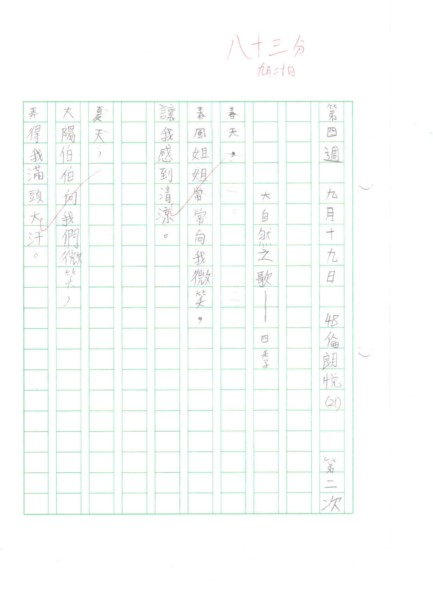 八十三分
九月二十日
第四週 九月十九日 4B 倫朗悅 (21) 第二次
大自然之歌——四季
春天，
春風姐姐常常向我微笑，
讓我感到清涼。
夏天，
大陽伯伯向我們微笑，
弄得我滿頭大汗。